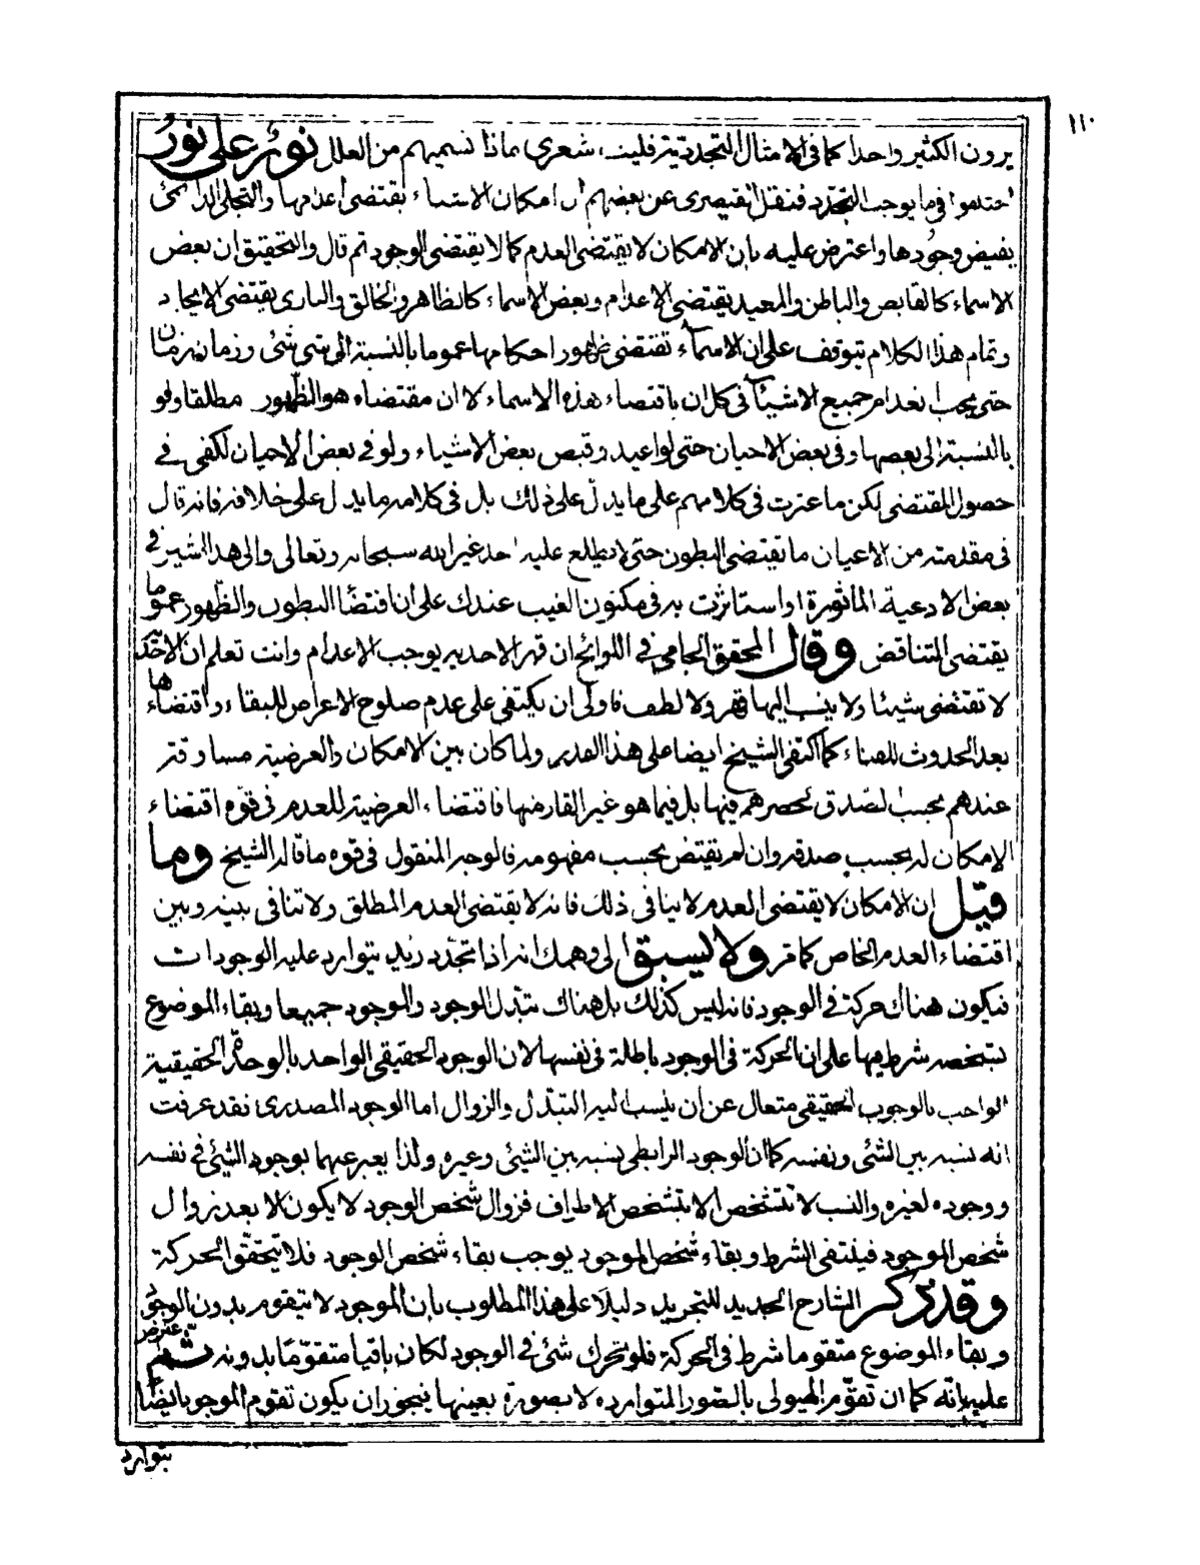 ١١٠
يرون الكثير واحدا كما فى الامثال المتجددية فليت شعرى ماذا نسميهم من العلل نور على نور
اختلفوا فى ما يوجب التجدد فنقل القيصرى عن بعضهم ان امكان الاشياء يقتضى اعدامها والتجلى الدائمى
يفيض وجودها واعترض عليه بان الامكان لا يقتضى العدم كما لا يقتضى الوجود ثم قال والتحقيق ان بعض
الاسماء كالقابض والباطن والمعيد يقتضى الاعدام وبعض الاسماء كالظاهر والخالق والبارى يقتضى الايجاد
وتمام هذا الكلام يتوقف على ان الاسماء تقتضى ظهور احكامها عموما بالنسبة الى شئ شئ وزمان زمان
حتى يجب انعدام جميع الاشياء فى كل ان باقتضاء هذه الاسماء لا ان مقتضاه هو الظهور مطلقا ولو
بالنسبة الى بعضها وفى بعض الاحيان حتى لو اعيد وقبض بعض الاشياء ولو فى بعض الاحيان لكفى فى
حصول المقتضى لكن ما عثرت فى كلامهم على ما يدل على ذلك بل فى كلامه ما يدل على خلافه فانه قال
فى مقدمته من الاعيان ما تقتضى البطون حتى لا يطلع عليه احد غير الله سبحانه وتعالى والى هذا اشير فى
بعض الادعية الماثورة او استاثرت به فى مكنون الغيب عندك على ان اقتضاء البطون والظهور عموما
يقتضى التناقض وقال المحقق الجامى فى اللوائح ان قهر الاحدية يوجب الاعدام وانت تعلم ان الاحدية
لا تقتضى شيئا ولا ينسب اليها قهر ولا لطف فاولى ان يكتفى على عدم صلوح الاعراض للبقاء واقتضاءها
بعد الحدوث للفناء كما اكتفى الشيخ ايضا على هذا القدر ولما كان بين الامكان والعرضية مساوقة
عندهم بحسب الصدق لحصرهم فيها بل فيما هو غير القار منها فاقتضاء العرضية للعدم فى قوة اقتضاء
الامكان له بحسب صدقه وان لم يقتض بحسب مفهومه فالوجه المنقول فى قوة ما قاله الشيخ وما
قيل ان الامكان لا يقتضى العدم لا ينافى ذلك فانه لا يقتضى العدم المطلق ولا تنافى بينه وبين
اقتضاء العدم الخاص كما مر ولا يسبق الى وهمك انه اذا تجدد زيد يتوارد عليه الوجودات
فيكون هناك حركة فى الوجود فانه ليس كذلك بل هناك يتبدل الوجود والموجود جميعا وبقاء الموضوع
بتشخصه شرط فيها على ان الحركة فى الوجود باطلة فى نفسها لان الوجود الحقيقى الواحد بالوحدة الحقيقية
الواجب بالوجوب الحقيقى متعال عن ان ينسب اليه التبدل والزوال اما الوجود المصدرى فقد عرفت
انه نسبة بين الشئ ونفسه كما ان الوجود الرابطى نسبة بين الشئ وغيره ولذا يعبر عنهما بوجود الشئ فى نفسه
ووجوده لغيره والنسب لا تتشخص الا بتشخص الاطراف فزوال شخص الوجود لا يكون الا بعد زوال
شخص الموجود فينتفى الشرط وبقاء شخص الموجود يوجب بقاء شخص الوجود فلا يتحقق الحركة
وقد ذكر الشارح الجديد للتجريد دليلا على هذا المطلوب بان الموجود لا يتقوم بدون الوجود
وبقاء الموضوع متقوما شرط فى الحركة فلو تحرك شئ فى الوجود لكان باقيا متقوما بدونه ثم اعترض
عليه بانه كما ان تقوم الهيولى بالصور المتواردة لا بصورة بعينها فيجوز ان يكون تقوم الموجود ايضا
بتوارد